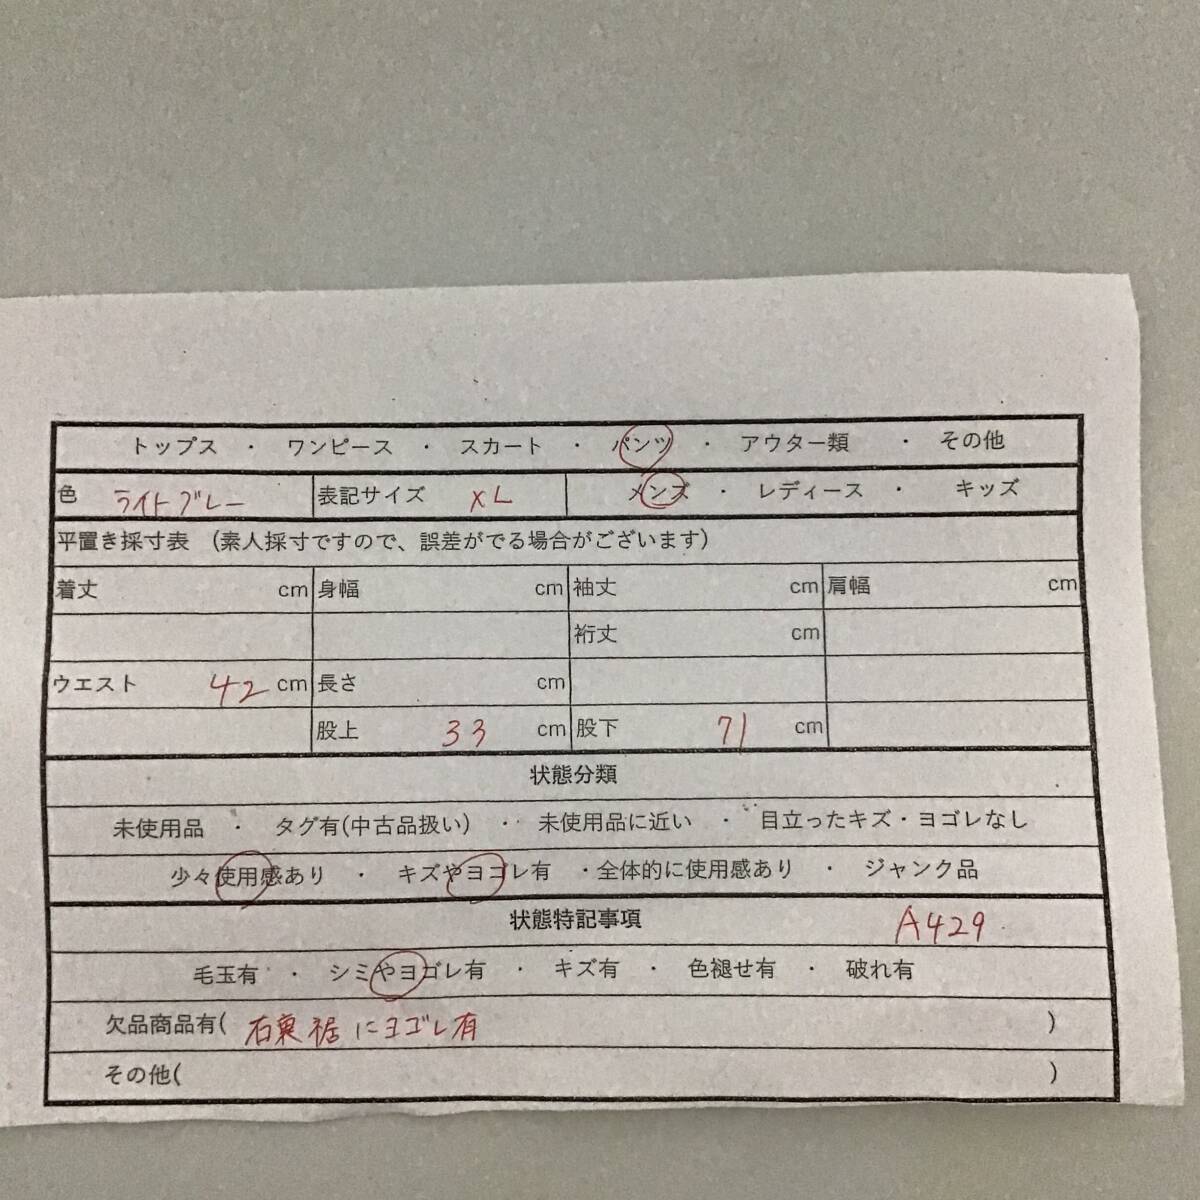 トップス ・ ワンピース ・ スカート ・ パンツ ・ アウター類 ・ その他
色 ライトグレー 表記サイズ XL メンズ ・ レディース ・ キッズ
平置き採寸表 (素人採寸ですので、誤差がでる場合がございます)
着丈 cm 身幅 cm 袖丈 cm 肩幅 cm
裄丈 cm
ウエスト 42 cm 長さ cm
股上 33 cm 股下 71 cm
状態分類
未使用品 ・ タグ有(中古品扱い) ・ 未使用品に近い ・ 目立ったキズ・ヨゴレなし
少々使用感あり ・ キズやヨゴレ有 ・全体的に使用感あり ・ ジャンク品
状態特記事項 A429
毛玉有 ・ シミやヨゴレ有 ・ キズ有 ・ 色褪せ有 ・ 破れ有
欠品商品有( 右裏裾にヨゴレ有 )
その他( )